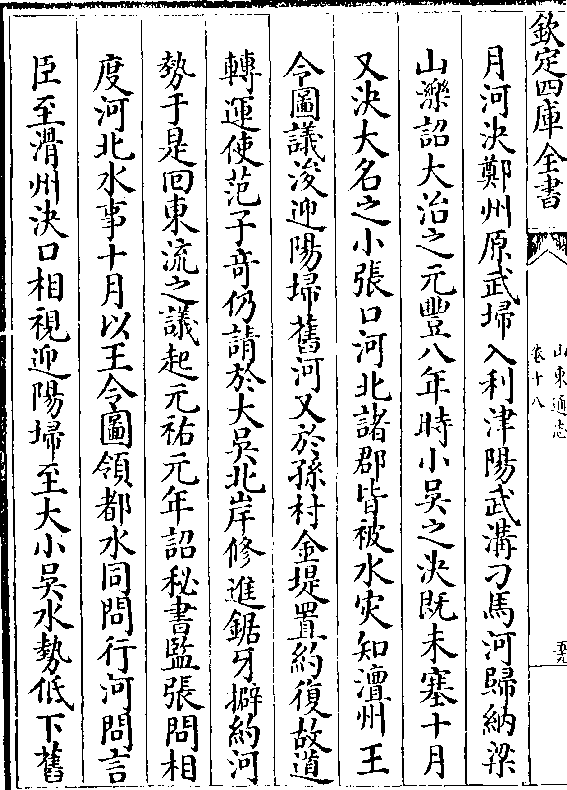 欽定四庫全書
山東通志
卷十八
月河決鄭州原武埽入利津陽武溝刁馬河歸納梁
山濼詔大治之元豐八年時小吳之決既未塞十月
又決大名之小張口河北諸郡皆被水灾知澶州王
令圖議浚迎陽埽舊河又於孫村金堤置約復故道
轉運使范子竒仍請於大吳北岸修進鋸牙擗約河
勢于是回東流之議起元祐元年詔秘書監張問相
度河北水事十月以王令圖領都水同問行河問言
臣至滑州決口相視迎陽埽至大小吳水勢低下舊